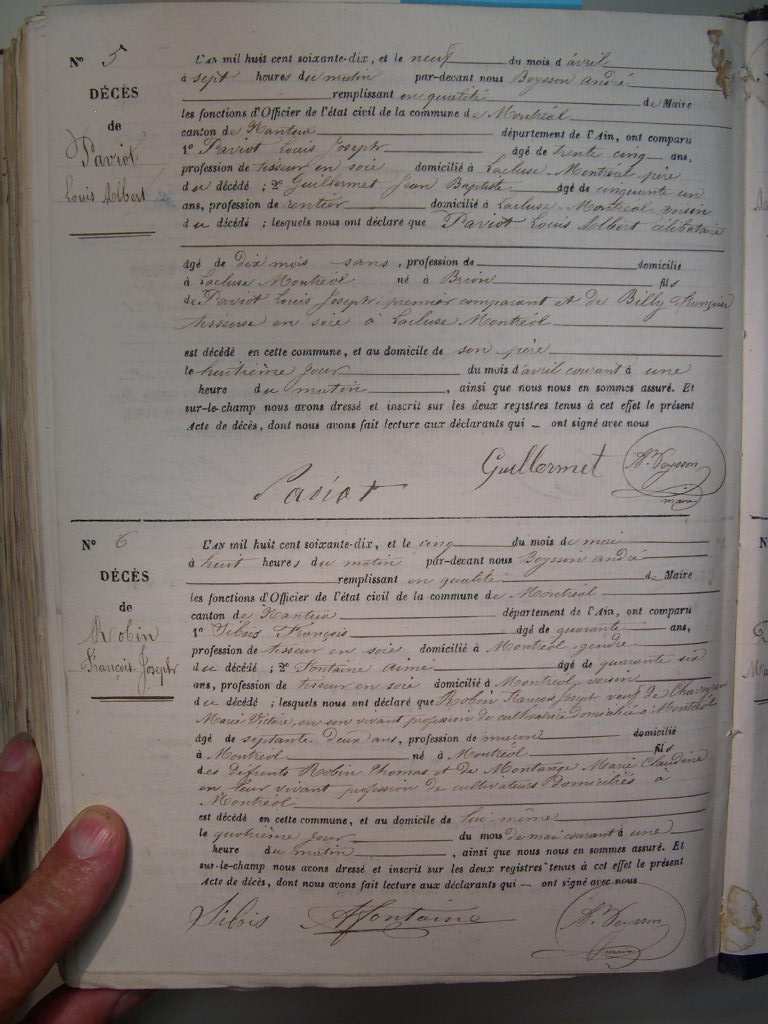 N° 5
DÉCÈS
de
Paviot
Louis Albert
L'AN mil huit cent soixante-dix, et le neuf du mois d'avril
à sept heures du matin par-devant nous Boysson andré
remplissant en qualité de Maire
les fonctions d'Officier de l'état civil de la commune de Montréal
canton de Nantua département de l'Ain, ont comparu
1° Paviot Louis Joseph âgé de trente cinq ans,
profession de tisseur en soie domicilié à Lacluse Montréal père
du décédé ; 2° Guillermet Jean Baptiste âgé de cinquante un
ans, profession de rentier domicilié à Lacluse Montréal voisin
du décédé ; lesquels nous ont déclaré que Paviot Louis Albert célibataire
âgé de dix mois sans, profession de domicilié
à Lacluse Montréal né à Brion fils
de Paviot Louis Joseph premier comparant et de Billy
tisseuse en soie à Lacluse Montréal
est décédé en cette commune, et au domicile de son père
le huitième jour du mois d'avril courant à une
heure du matin, ainsi que nous nous en sommes assuré. Et
sur-le-champ nous avons dressé et inscrit sur les deux registres tenus à cet effet le présent
Acte de décès, dont nous avons fait lecture aux déclarants qui – ont signé avec nous
Paviot Guillermet A. Boysson
maire
N° 6
DÉCÈS
de
Robin
François Joseph
L'AN mil huit cent soixante-dix, et le cinq du mois de mai
à huit heures du matin par-devant nous Boysson andré
remplissant en qualité de Maire
les fonctions d'Officier de l'état civil de la commune de Montréal
canton de Nantua département de l'Ain, ont comparu
1° Silvis François âgé de quarante ans,
profession de tisseur en soie domicilié à Montréal gendre
du décédé ; 2° Fontaine Aimé âgé de quarante six
ans, profession de tisseur en soie domicilié à Montréal voisin
du décédé ; lesquels nous ont déclaré que Robin François Joseph veuf de
Marie Victoire, en son vivant profession de cultivatrice domiciliée à Montréal
âgé de septante deux ans, profession de maçon domicilié
à Montréal né à Montréal fils
des défunts Robin Thomas et de Montange Marie Claudine
en leur vivant profession de cultivateurs domiciliés à
Montréal
est décédé en cette commune, et au domicile de lui-même
le quatrième jour du mois de mai courant à une
heure du matin, ainsi que nous nous en sommes assuré. Et
sur-le-champ nous avons dressé et inscrit sur les deux registres tenus à cet effet le présent
Acte de décès, dont nous avons fait lecture aux déclarants qui – ont signé avec nous
Silvis Afontaine A. Boysson